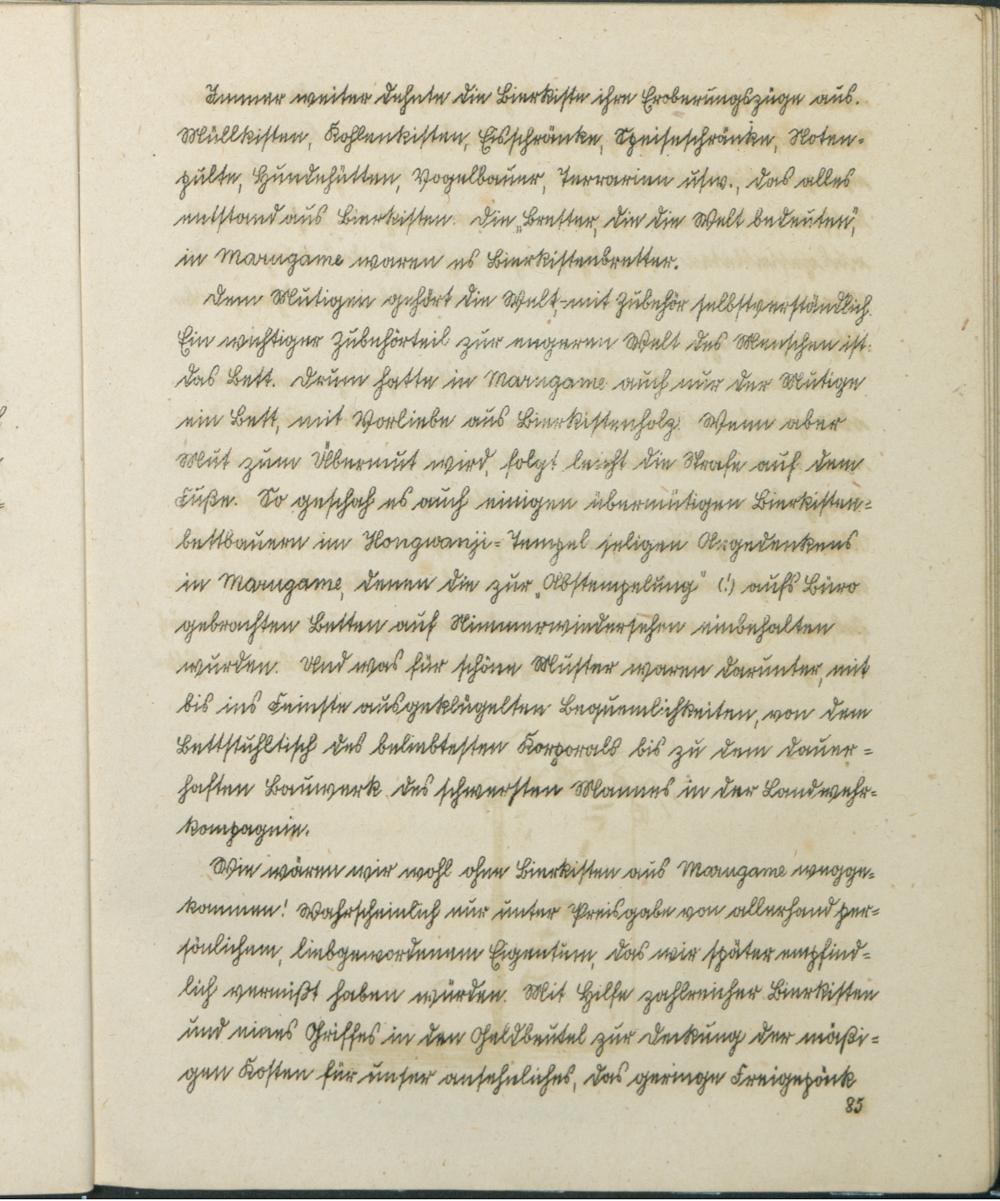 Immer weiter dehnte die Bierkiste ihre Eroberungszüge aus.
Müllkisten, Kohlenkisten, Eisschränke, Speiseschränke, Noten-
pulte, Hundehütten, Vogelbauer, Terrarien usw., das alles
entstand aus Bierkisten. Die „Bretter, die die Welt bedeuten",
in Marugame waren es Bierkistenbretter.
Dem Mutigen gehört die Welt,-mit Zubehör selbstverständlich.
Ein wichtiger Zubehörteil zur engeren Welt des Menschen ist:
das Bett. Drum hatte in Marugame auch nur der Mutige
ein Bett, mit Vorliebe aus Bierkistenholz. Wenn aber
Mut zum Übermut wird, folgt leicht die Strafe auf dem
Fuße. So geschah es auch einigen übermütigen Bierkisten-
bettbauern im Hongwanji-Tempel seligen Angedenkens
in Marugame, denen die zur „Abstempelung" (!) aufs Büro
gebrachten Betten auf Nimmerwiedersehen einbehalten
wurden. Und was für schöne Muster waren darunter, mit
bis ins Feinste ausgeklügelten Bequemlichkeiten, von dem
Bettstuhltisch des beliebtesten Korporals bis zu dem dauer-
haften Bauwerk des schwersten Mannes in der Landwehr-
kompagnie.
Wie wären wir wohl ohne Bierkisten aus Marugame wegge-
kommen! Wahrscheinlich nur unter Preisgabe von allerhand per-
sönlichem, liebgewordenem Eigentum, das wir später empfind-
lich vermißt haben würden. Mit Hilfe zahlreicher Bierkisten
und eines Griffes in den Geldbeutel zur Deckung der mäßi-
gen Kosten für unser ansehnliches, das geringe Freigepäck
85